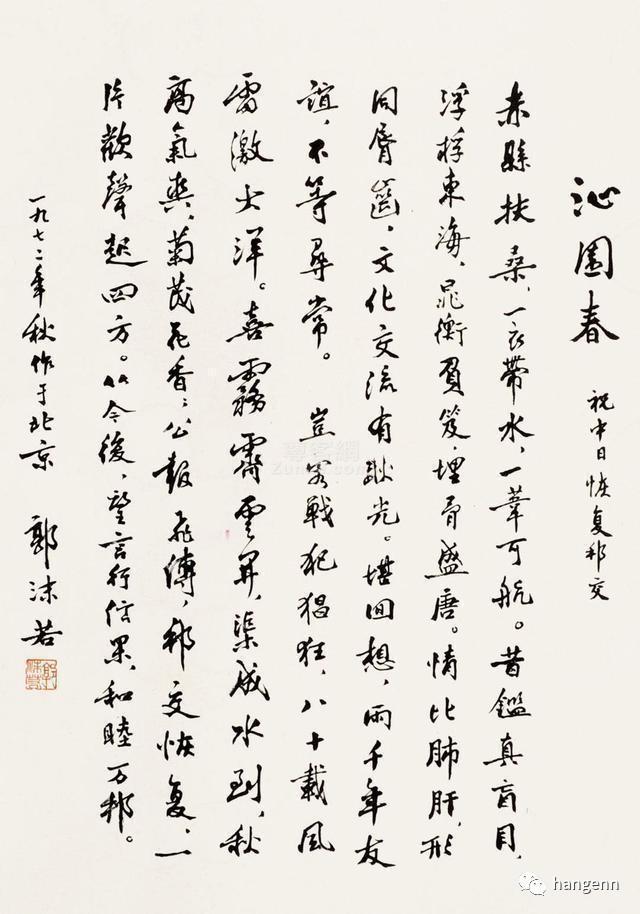 沁園春 祝中日恢复邦交
赤縣扶桑，一衣帶水，一葦可航。昔鑑真盲目，
浮桴東海，晁衡負笈，埋骨盛唐。情比肺肝，形
同唇齒，文化交流有耿光。堪回想，兩千年友
誼，不等尋常。 豈容戰犯猖狂，八十載風
雷激大洋。喜霧霽雲開，渠成水到，秋
高氣爽，菊茂花香，公報飛傳，邦交恢复，一
片歡聲起四方。从今後，望言行信果，和睦万邦。
一九七二年秋作于北京 郭沫若
尊客網
hangenn